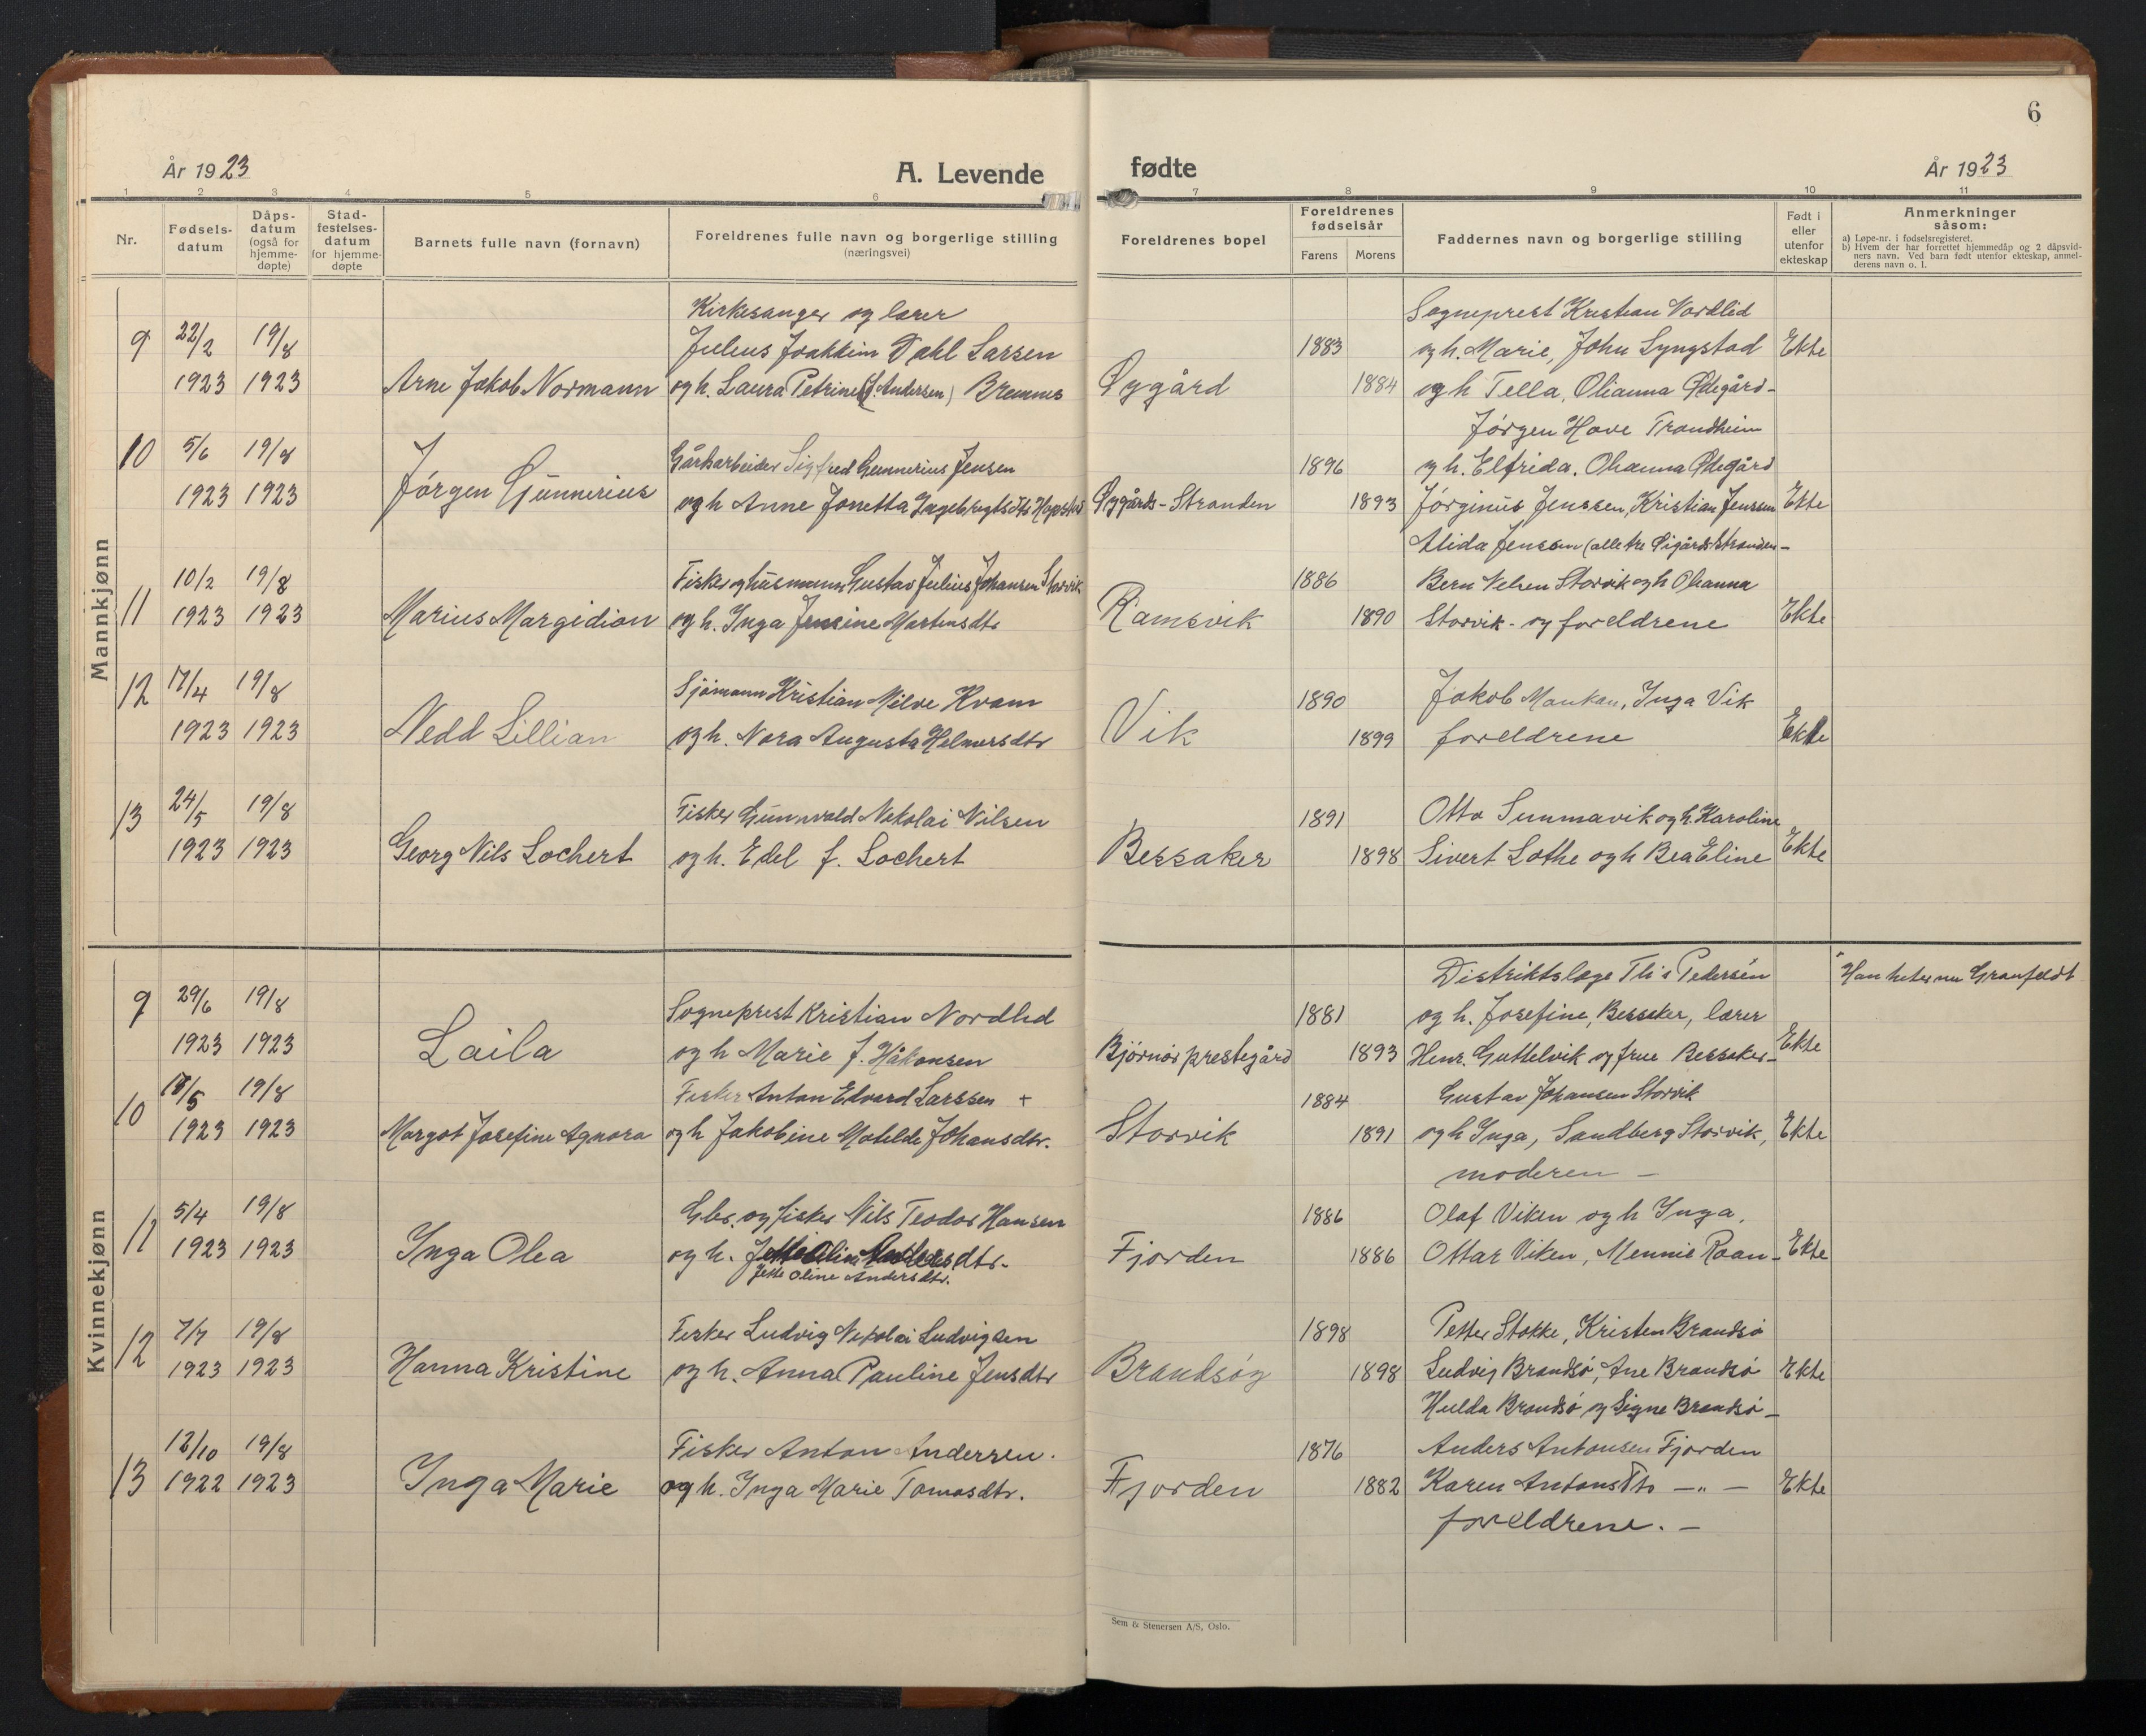 6
År 1923
A. Levende
fødte
År 1923
1 2 3 4 5 6 7 8 9 10 11
Nr.
Fødsels-
datum
Dåps-
datum
(også for
hjemme-
døpte)
Stad-
festelses-
datum
for hjemme-
døpte
Barnets fulle navn (fornavn)
Foreldrenes fulle navn og borgerlige stilling
(næringsvei)
Foreldrenes bopel
Foreldrenes
fødselsår
Farens Morens
Faddernes navn og borgerlige stilling
Født i
eller
utenfor
ekteskap
Anmerkninger
såsom:
a) Løpe-nr. i fødselsregisteret.
b) Hvem der har forrettet hjemmedåp og 2 dåpsvid-
ners navn. Ved barn født utenfor ekteskap, anmel-
derens navn o. l.
Mannkjønn
Kirkesanger og lærer
9 22/2 19/8 Julius Joakkim Dahl Larsen 1883
1923 1923 Arne Jakob Normann og h. Laura Petrine (f. Andersen) Bremnes Øygård 1884
Sogneprest Kristian Nordlid
og h. Marie, John Lyngstad Ekte
og h Tella, Olianna Ødegård-
10 5/6 19/8 Gårdsarbeider Sigfred Gunnerius Jensen 1896
1923 1923 Jørgen Gunnerius og h Anne Jonetta Ingebregtsdtr Hopstad Øygårds-Stranden 1893
Jørgen Hove Trondheim
og h. Elfrida. Ohanna Ødegård
Jørginus Jenssen, Kristian Jenssen Ekte
Alida Jenssen (alle tre Øigårds Stranden-
11 10/2 19/8 Fisker og husmann Gustav Julius Johansen Storvik 1886
1923 1923 Marius Margidion og h. Inga Jensine Martensdtr Ramsvik 1890
Bern Nelsen Storvik og h Ohanna
Storvik - og foreldrene Ekte
12 17/4 19/8 Sjømann Kristian Milve Kvam 1890 Jakob Mankan, Inga Vik
1923 1923 Nedd Lillian og h. Nora Augusta Helmersdtr Vik 1899 foreldrene Ekte
13 24/5 19/8 Fisker Gunnvald Nikolai Nilsen 1891 Otto Sunmavik og h. Karoline
1923 1923 Georg Nils Lochert og h. Edel f. Lochert Bessaker 1898 Sivert Lothe og h Bea Eline Ekte
Kvinnekjønn
9 29/6 19/8 Sogneprest Kristian Nordlid 1881
1923 1923 Laila og h Marie f. Håkonsen Bjørnør prestegård 1893
Distriktslæge Pedersen
og h. Josefine, Bessaker, lærer
Henr. Guttelvik og frue Bessaker- Ekte
Han heter nu Granfeldt
10 18/5 19/8 Fisker Anton Edvard Larssen + 1884 Gustav Johansen Storvik
1923 1923 Margot Josefine Agnora og h Jakobine Matilde Johansdtr. Storvik 1891 og h Inga, Sandberg Storvik, Ekte
moderen -
11 5/4 19/8 Gbr. og fisker Nils Teodor Hansen 1886 Olaf Viken og h Inga,
1923 1923 Inga Olea og h. Jette Oline Andersdtr. Fjorden 1886 Ottar Viken, Mennie Roan - Ekte
Jette Oline Andersdtr.
12 7/7 19/8 Fisker Ludvig Nikolai Ludvigsen 1898 Petter Stokke, Kristen Brandsø
1923 1923 Hanna Kristine og h. Anna Pauline Jensdtr Brandsøy 1898 Ludvig Brandsø, Ane Brandsø Ekte
Hulda Brandsø og Signe Brandsø -
13 12/10 19/8 Fisker Anton Andersen. 1876 Anders Antonsen Fjorden
1922 1923 Inga Marie og h. Inga Marie Tomasdtr. Fjorden 1882 Karen Antonsdtr — " — Ekte
foreldrene. -
Sem & Stenersen A/S, Oslo.